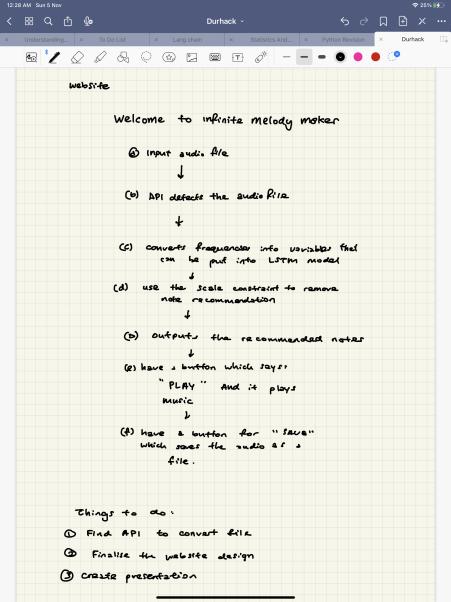 12:28 AM Sun 5 Nov
25%
Durhack
Understanding...
To Do List
Lang chain
Statistics And...
Python Revision
Durhack
website
Welcome to infinite melody maker
(a) Input audio file
(b) API detects the audio file
(c) converts frequencies into variables that
can be put into LSTM model
(d) use the scale constraint to remove
note recommendation
(D) outputs the recommended notes
(e) have a button which says:
"PLAY" And it plays
music
(f) have a button for "save"
which saves the audio as a
file.
Things to do:
① Find API to convert file
② Finalise the website design
③ create presentation